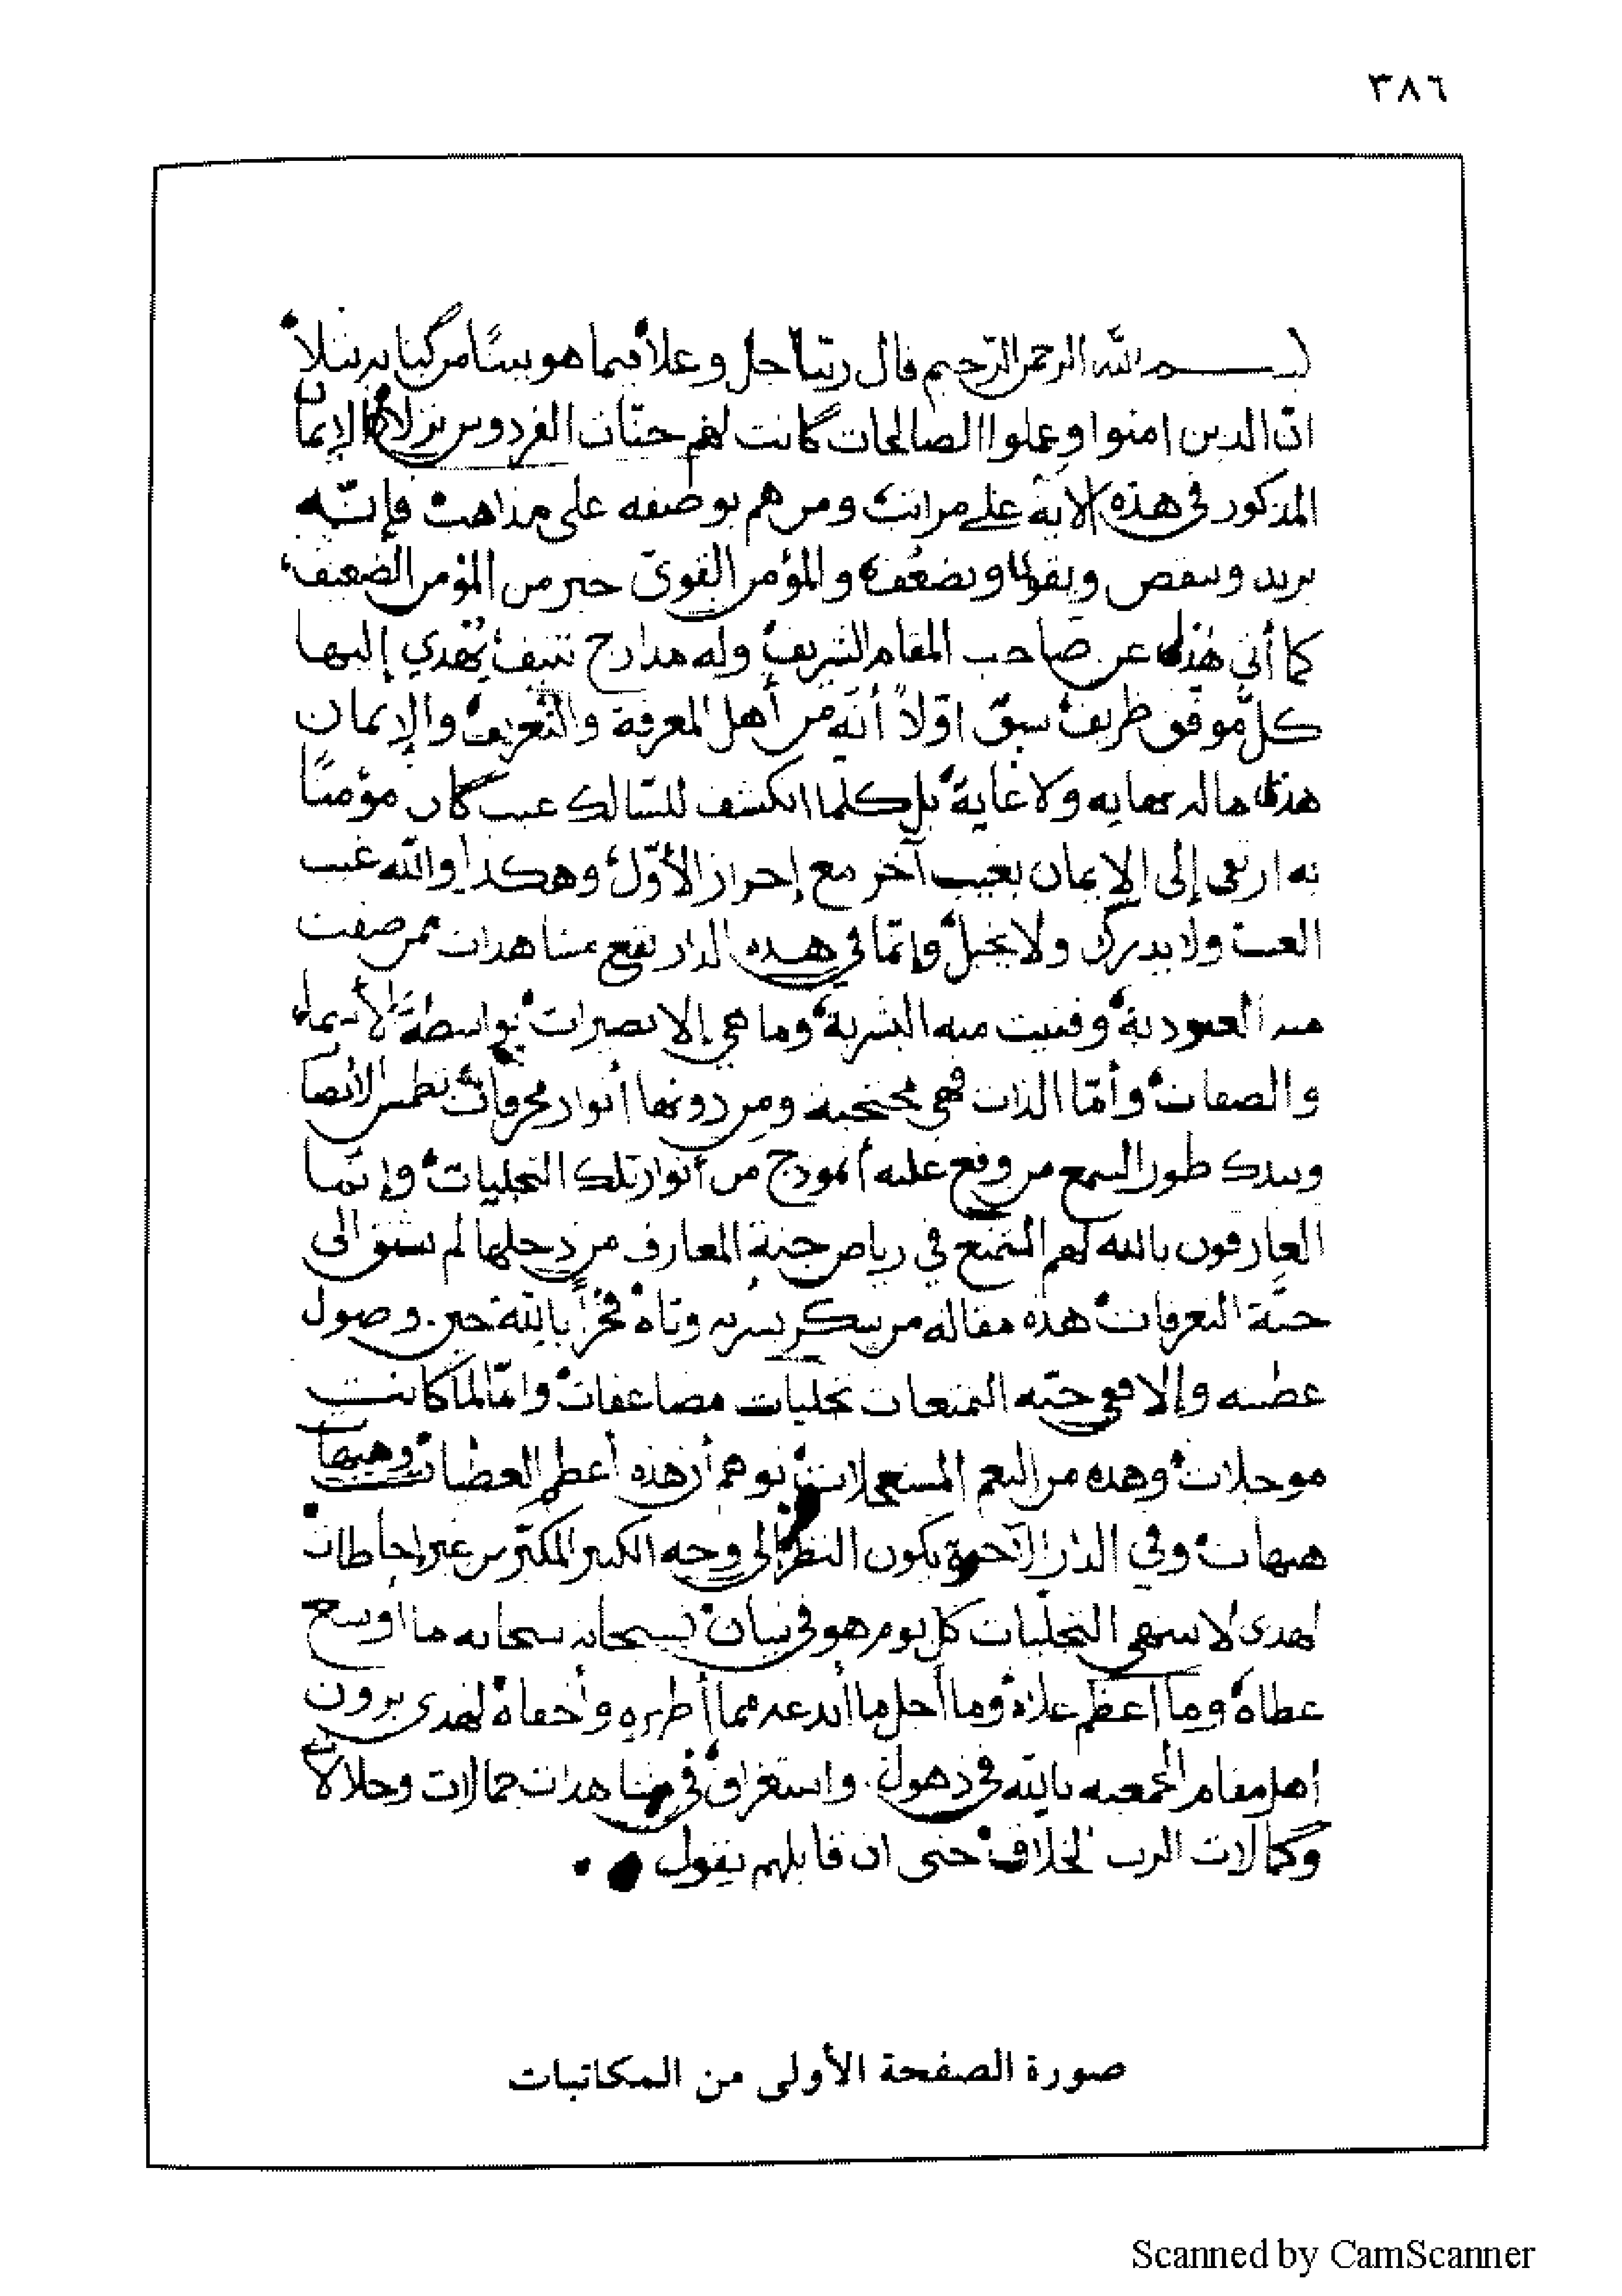 ٣٨٦
بسم الله الرحمن الرحيم قال ربنا جل وعلا فيما هو بيننا من كتابه يتلا
ان الذين امنوا وعملوا الصالحات كانت لهم جنات الفردوس نزلا الإيمان
المذكور في هذه الاية على مراتب ومن هم بوصفه على مذاهب فإنه
يزيد وينقص ويقوا ويضعف والمؤمن القوي خير من المؤمن الضعيف
كما أتى هذا عن صاحب المقام الشريف وله مدارج تنيف يهدي إليها
كل موفق ظريف سبق اولاً أنه من أهل المعرفة والتعريف والإيمان
هذا ما له نهايه ولا غاية بل كلما انكشف للسالك غيب كان مؤمنًا
به ارتقى إلى الإيمان بغيب آخر مع إحراز الأول وهكذا والله غيب
الغيب ولا يدرك ولا يخيل وإنما في هذه الدار تقع مشاهدات ممن صفت
منه العبودية وفنيت منه البشرية وما هي إلا تصيرات بواسطة الأسماء
والصفات وأما الذات فهي محتجبة ومن دونها أنوار محرقات تطمس الأبصا
ويندك طور السمع من وقع عليه أنموذج من أنوار تلك التجليات وإنما
العارفون بالله لهم التمتع في رياض جنة المعارف من دخلها لم يشتق الى
جنة التعرفات هذه مقالة من سكر بشربه وتاه فخراً بالله حين وصول
عطيته وإلا ففي جنه التمتعات تجليات مضاعفات واما لما كانت
موجلات وهذه من النعم المستعجلات توهم أن هذه أعظم العطيات وهيهات
هيهات وفي الدار الآخرة يكون النظر إلى وجه الكبير المكبر من غير إحاطات
لهذى لا تنتهي التجليات كل يوم هو في شان سبحانه سبحانه ما أوسع
عطاه وما أعظم علاه وما أجل ما أبدعه مما أظهره وأخفاه لهذى يرون
أهل مقام الجمعيه بالله في ذهول واستغراق في مشاهدات جمالات وجلالات
وكمالات الرب الخلاق حتى ان قايلهم يقول
صورة الصفحة الأولى من المكاتبات
Scanned by CamScanner